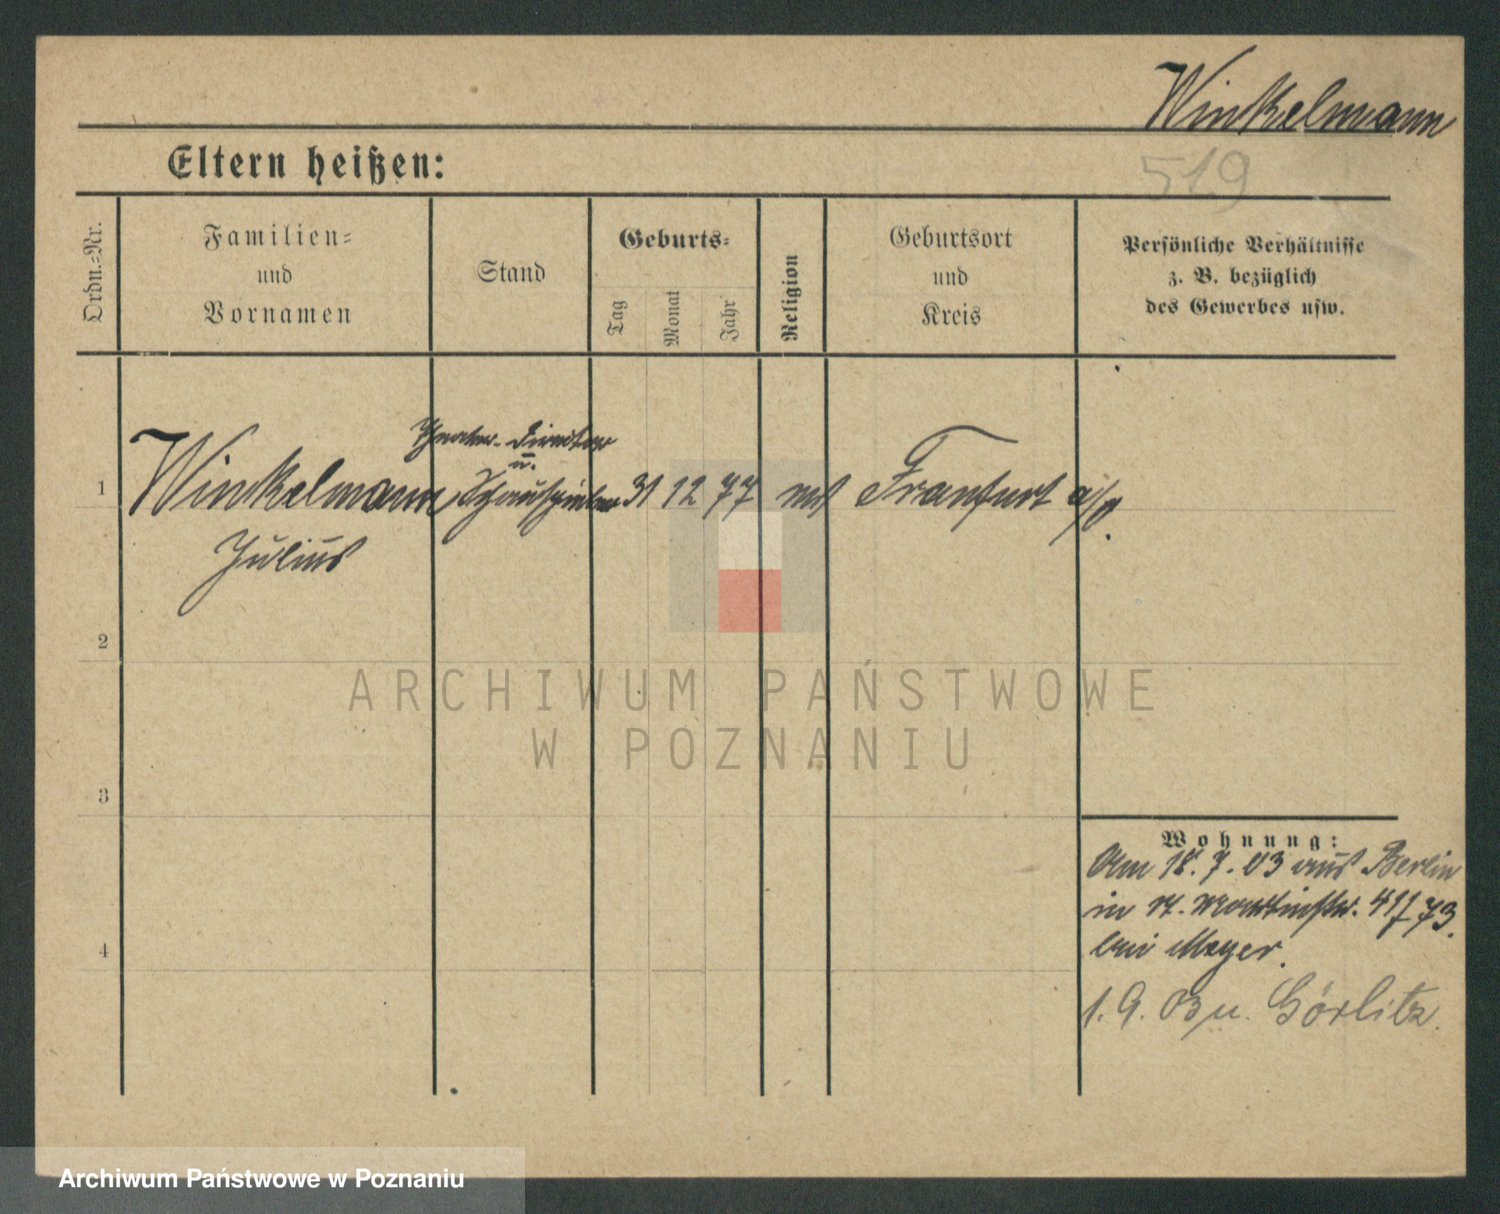 Winkelmann
519
Eltern heißen:
Ordn.-Nr.
Familien-
und
Vornamen
Stand
Geburts-
Tag
Monat
Jahr
Religion
Geburtsort
und
Kreis
Persönliche Verhältnisse
z. B. bezüglich
des Gewerbes usw.
Theater-Direktor
u.
1 Winkelmann, Schauspieler 31 12 77 Frankfurt a/O.
Julius
2
3
4
Wohnung:
Am 18. 7. 03 aus Berlin
in St. Martinstr. 41 73.
bei Meyer.
1. 9. 03 n. Görlitz.
ARCHIWUM PAŃSTWOWE
W POZNANIU
Archiwum Państwowe w Poznaniu